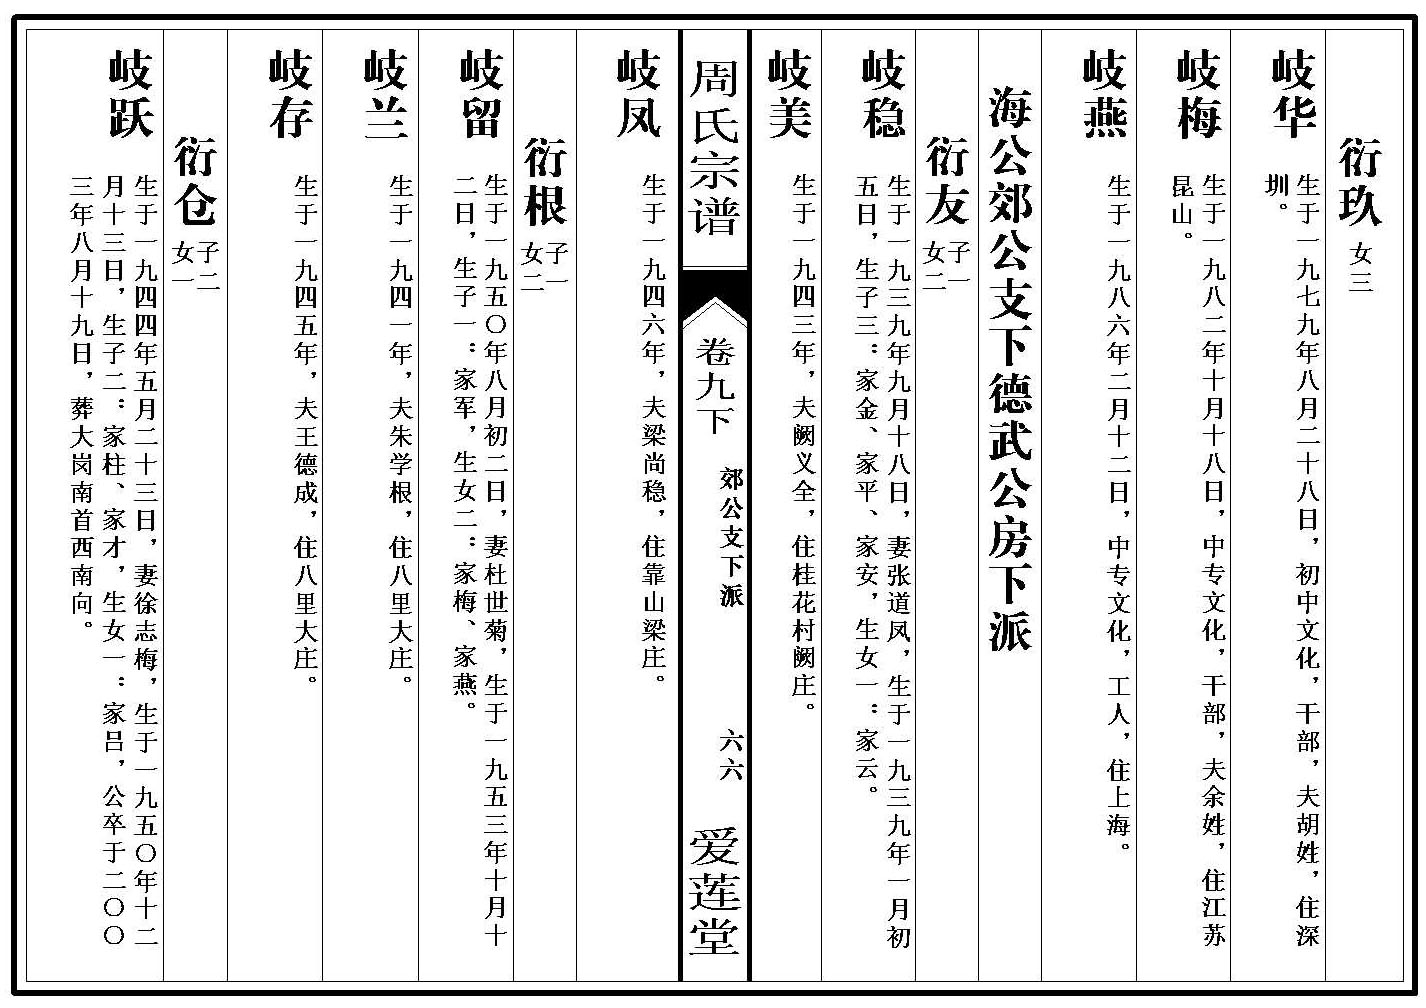 衍玖 女三
岐华
生于一九七九年八月二十八日，初中文化，干部，夫胡姓，住深
圳。
岐梅
生于一九八二年十月十八日，中专文化，干部，夫余姓，住江苏
昆山。
岐燕
生于一九八六年二月十二日，中专文化，工人，住上海。
海公郊公支下德武公房下派
衍友 子一
女二
岐稳
生于一九三九年九月十八日，妻张道凤，生于一九三九年一月初
五日，生子三：家金、家平、家安，生女一：家云。
岐美
生于一九四三年，夫阙义全，住桂花村阙庄。
周氏宗谱
卷九下
郊公支下派
六六
爱莲堂
岐凤
生于一九四六年，夫梁尚稳，住靠山梁庄。
衍根 子一
女二
岐留
生于一九五〇年八月初二日，妻杜世菊，生于一九五三年十月十
二日，生子一：家军，生女二：家梅、家燕。
岐兰
生于一九四一年，夫朱学根，住八里大庄。
岐存
生于一九四五年，夫王德成，住八里大庄。
衍仓 子二
女一
岐跃
生于一九四四年五月二十三日，妻徐志梅，生于一九五〇年十二
月十三日，生子二：家柱、家才，生女一：家吕，公卒于二〇〇
三年八月十九日，葬大岗南首西南向。